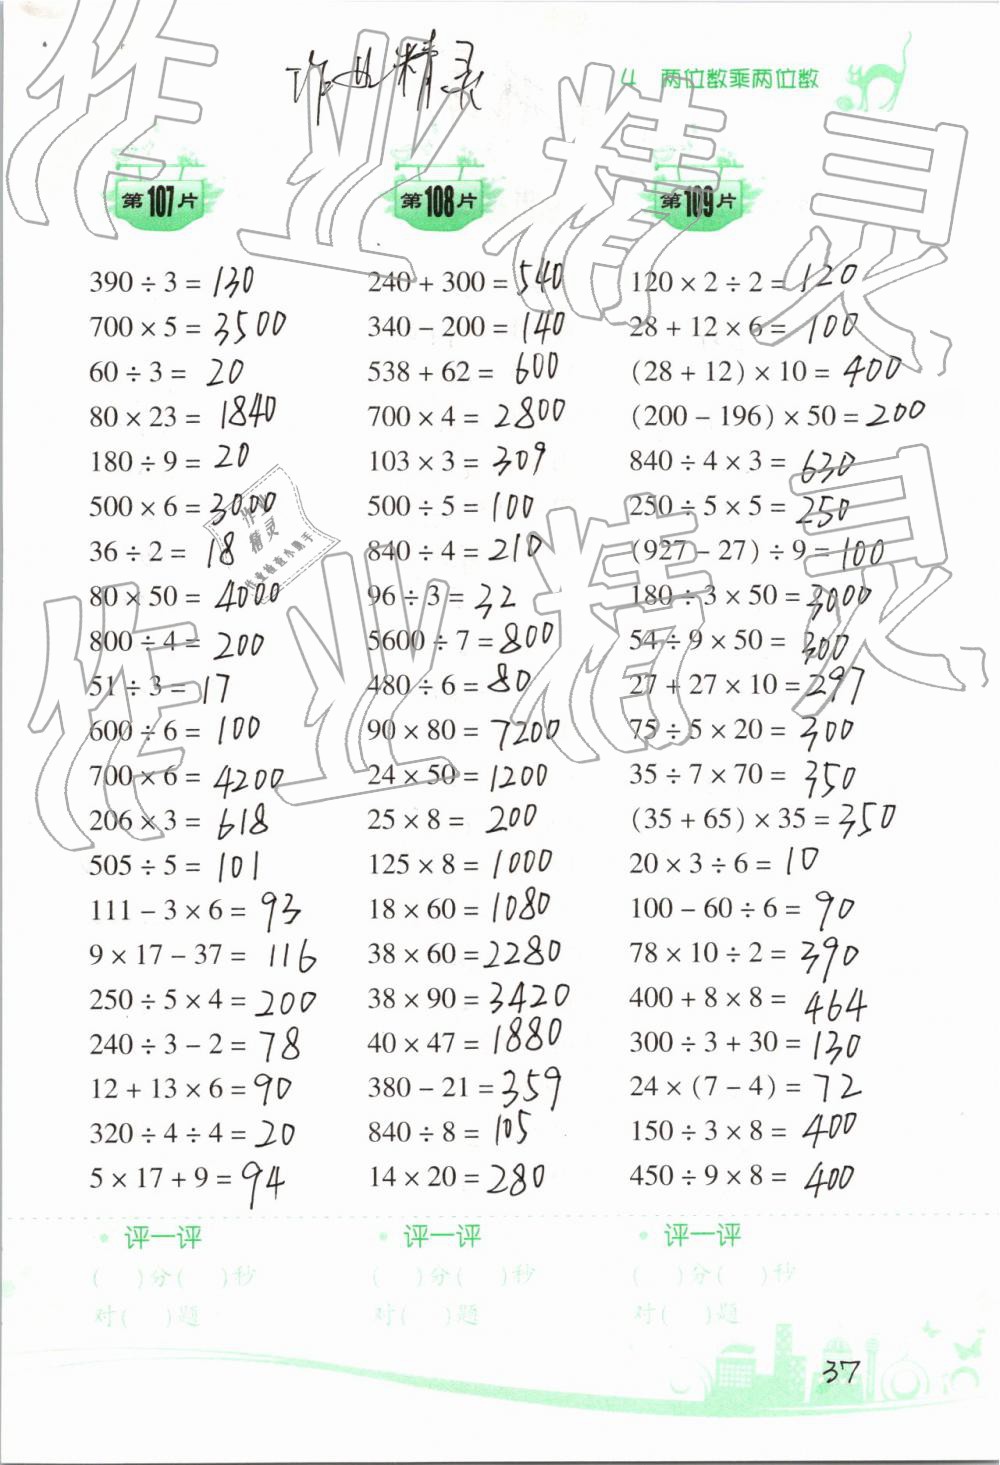 作业精灵
4 两位数乘两位数
第107片
390 ÷ 3 = 130
700 × 5 = 3500
60 ÷ 3 = 20
80 × 23 = 1840
180 ÷ 9 = 20
500 × 6 = 3000
36 ÷ 2 = 18
80 × 50 = 4000
800 ÷ 4 = 200
51 ÷ 3 = 17
600 ÷ 6 = 100
700 × 6 = 4200
206 × 3 = 618
505 ÷ 5 = 101
111 − 3 × 6 = 93
9 × 17 − 37 = 116
250 ÷ 5 × 4 = 200
240 ÷ 3 − 2 = 78
12 + 13 × 6 = 90
320 ÷ 4 ÷ 4 = 20
5 × 17 + 9 = 94
评一评
( )分( )秒
对( )题
第108片
240 + 300 = 540
340 − 200 = 140
538 + 62 = 600
700 × 4 = 2800
103 × 3 = 309
500 ÷ 5 = 100
840 ÷ 4 = 210
96 ÷ 3 = 32
5600 ÷ 7 = 800
480 ÷ 6 = 80
90 × 80 = 7200
24 × 50 = 1200
25 × 8 = 200
125 × 8 = 1000
18 × 60 = 1080
38 × 60 = 2280
38 × 90 = 3420
40 × 47 = 1880
380 − 21 = 359
840 ÷ 8 = 105
14 × 20 = 280
评一评
( )分( )秒
对( )题
第109片
120 × 2 ÷ 2 = 120
28 + 12 × 6 = 100
(28 + 12) × 10 = 400
(200 − 196) × 50 = 200
840 ÷ 4 × 3 = 630
250 ÷ 5 × 5 = 250
(927 − 27) ÷ 9 = 100
180 ÷ 3 × 50 = 3000
54 ÷ 9 × 50 = 300
27 + 27 × 10 = 297
75 ÷ 5 × 20 = 300
35 ÷ 7 × 70 = 350
(35 + 65) × 35 = 350
20 × 3 ÷ 6 = 10
100 − 60 ÷ 6 = 90
78 × 10 ÷ 2 = 390
400 + 8 × 8 = 464
300 ÷ 3 + 30 = 130
24 × (7 − 4) = 72
150 ÷ 3 × 8 = 400
450 ÷ 9 × 8 = 400
评一评
( )分( )秒
对( )题
37
作业精灵
作业精灵
作业精灵